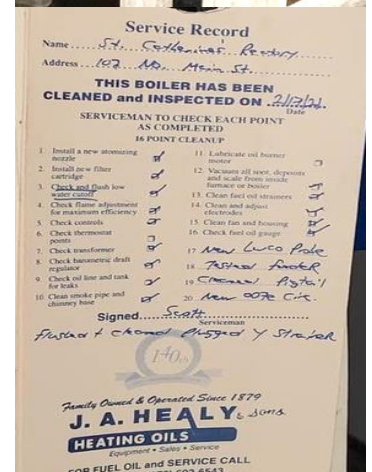 Service Record
Name St. Catherines Rectory
Address 102 No. Main St.
THIS BOILER HAS BEEN
CLEANED and INSPECTED ON
Date
SERVICEMAN TO CHECK EACH POINT
AS COMPLETED
16 POINT CLEANUP
1. Install a new atomizing nozzle
2. Install new filter cartridge
3. Check and flush low water cutoff
4. Check flame adjustment for maximum efficiency
5. Check controls
6. Check thermostat points
7. Check transformer
8. Check barometric draft regulator
9. Check oil line and tank for leaks
10. Clean smoke pipe and chimney base
11. Lubricate oil burner motor
12. Vacuum all soot, deposits and scale from inside furnace or boiler
13. Clean fuel oil strainers
14. Clean and adjust electrodes
15. Clean fan and housing
16. Check fuel oil gauge
17 New LWCO Probe
18 Tested feeder
19 Cleaned Pigtail
20 New 007e Circ.
Signed Scott
Serviceman
Flushed + cleaned Plugged Y Strainer
140th
Family Owned & Operated Since 1879
J. A. HEALY & Sons
HEATING OILS
Equipment • Sales • Service
FOR FUEL OIL and SERVICE CALL